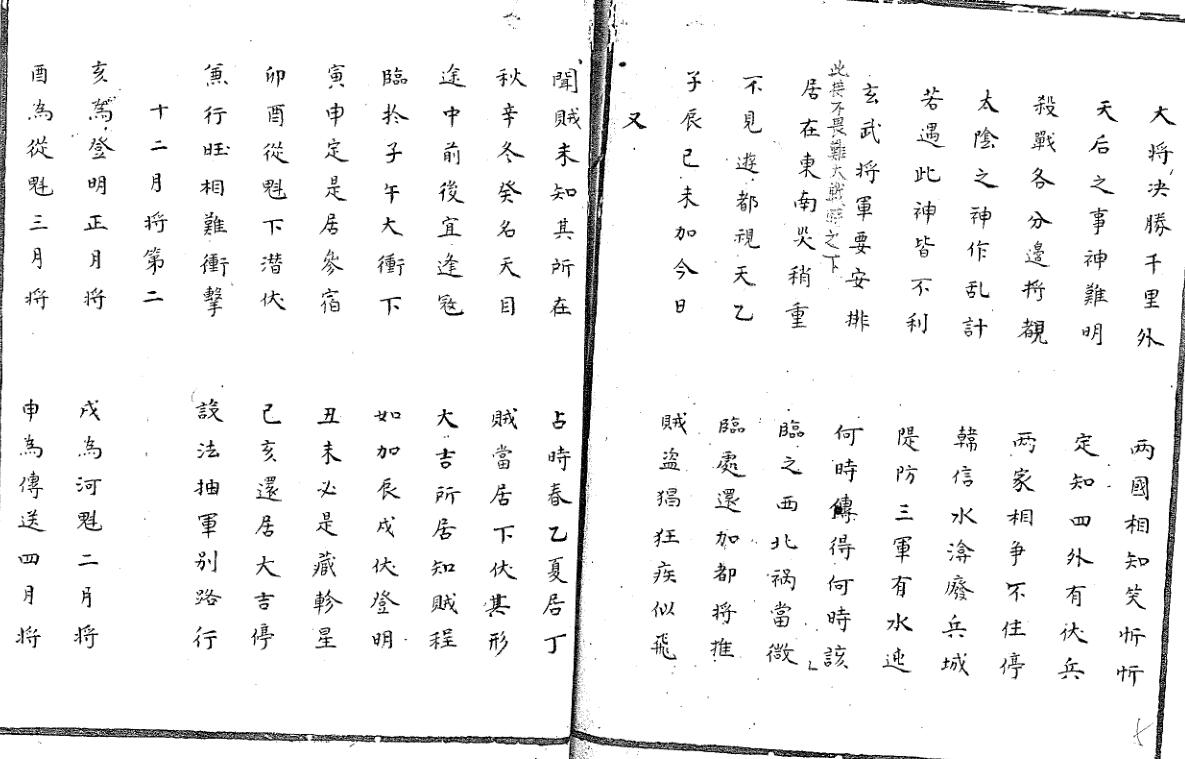 大将决勝千里外　两國相知笑忻忻
天后之事神難明　定知四外有伏兵
殺戰各分邊将觀　两家相争不住停
太陰之神作乱計　韓信水渰廢兵城
若遇此神皆不利　隄防三軍有水迍
玄武将軍要安排　何時傳得何時該
此将不畏難大戰之下
居在東南灾稍重　臨之西北祸當微
不見遊都視天乙　臨處還加都将推
子辰巳未加今日　賊盗猖狂疾似飛
又
聞賊未知其所在　占時春乙夏居丁
秋辛冬癸名天目　賊當居下伏其形
途中前後宜逢寇　大吉所居知賊程
臨於子午大衝下　如加辰戌伏登明
寅申定是居參宿　丑未必是藏軫星
卯酉從魁下潜伏　己亥還居大吉停
兼行旺相難衝擊　設法抽軍别路行
十二月将第二
亥為登明正月将　戌為河魁二月将
酉為從魁三月将　申為傳送四月将